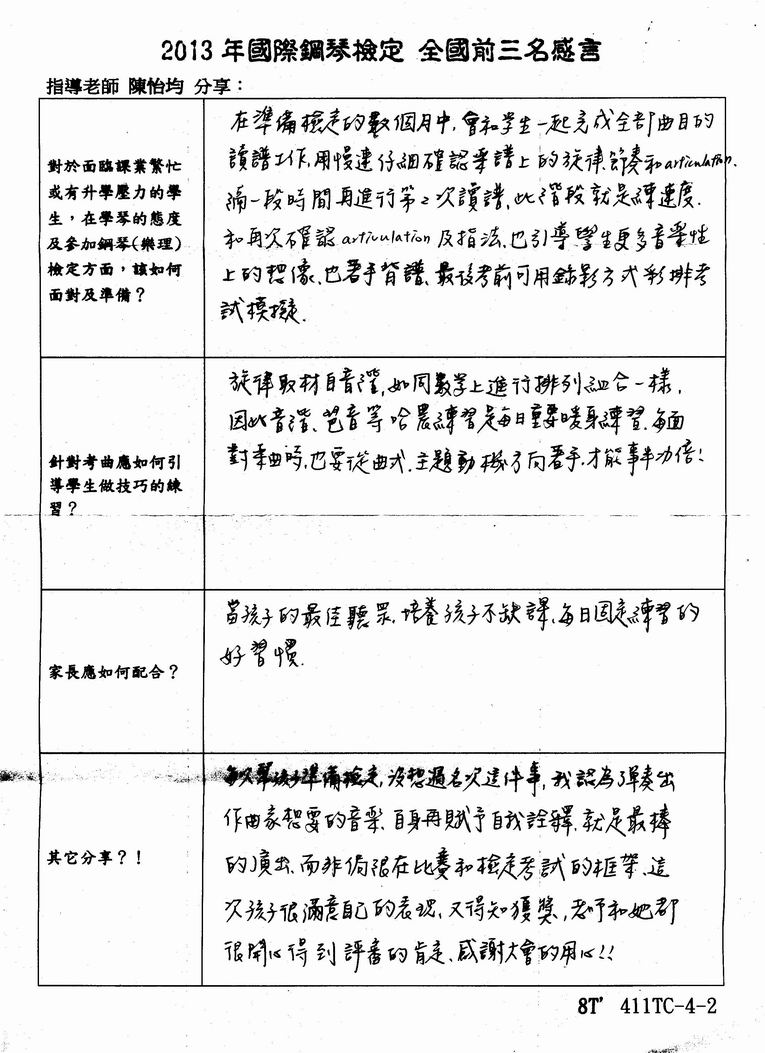 2013 年國際鋼琴檢定 全國前三名感言
指導老師 陳怡均 分享：
對於面臨課業繁忙
或有升學壓力的學
生，在學琴的態度
及參加鋼琴(樂理)
檢定方面，該如何
面對及準備？
在準備檢定的數個月中，會和学生一起完成全部曲目的
讀譜工作，用慢速仔細確認樂譜上的旋律、節奏和articulation、
隔一段時間再進行第2次讀譜，此階段就是練速度、
和再次確認 articulation 及指法，也引導學生更多音樂性
上的想像、也著手背譜、最後考前可用錄影方式彩排考
試模擬、
針對考曲應如何引
導學生做技巧的練
習？
旋律取材自音階，如同數学上進行排列組合一樣，
因此音階、琶音等哈農練習是每日重要暖身練習、每面
對樂曲時，也要從曲式、主題動機方向著手，才能事半功倍！
家長應如何配合？
當孩子的最佳聽眾、培養孩子不缺課、每日固定練習的
好習慣、
其它分享？！
準備檢定，沒想過名次這件事，我認為彈奏出
作曲家想要的音樂、自身再賦予自我詮釋、就是最棒
的演出、而非侷限在比賽和檢定考試的框架、這
次孩子很滿意自己的表現、又得知獲獎，老师和她都
很開心得到評審的肯定、感謝大會的用心！！
8T' 411TC-4-2